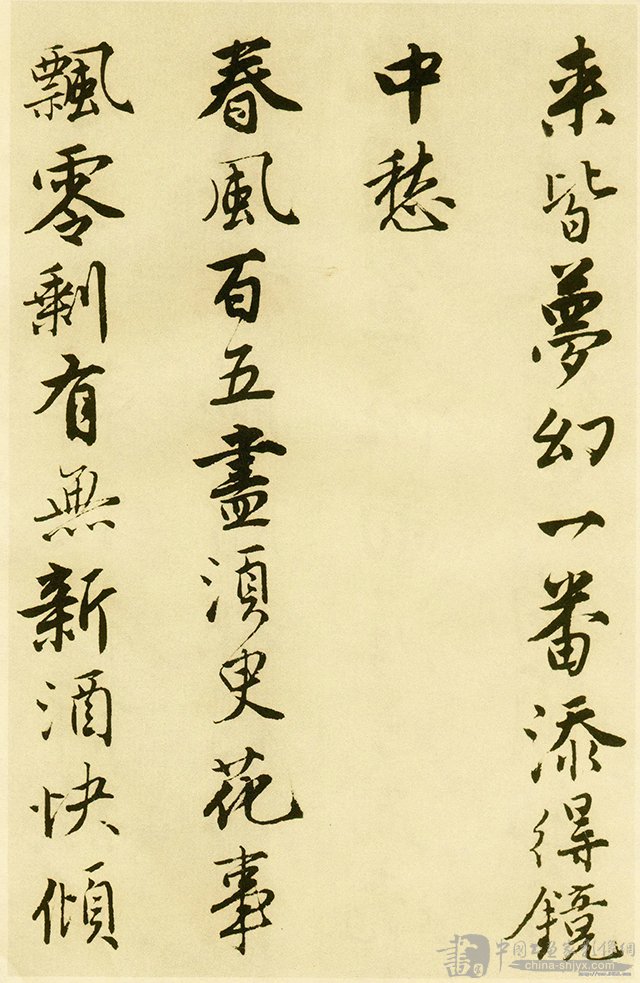 来皆夢幻一番添得鏡
中愁
春風百五盡須臾花事
飄零剩有無新酒快傾
書 中國書畫家影像網
china-shjyx.com